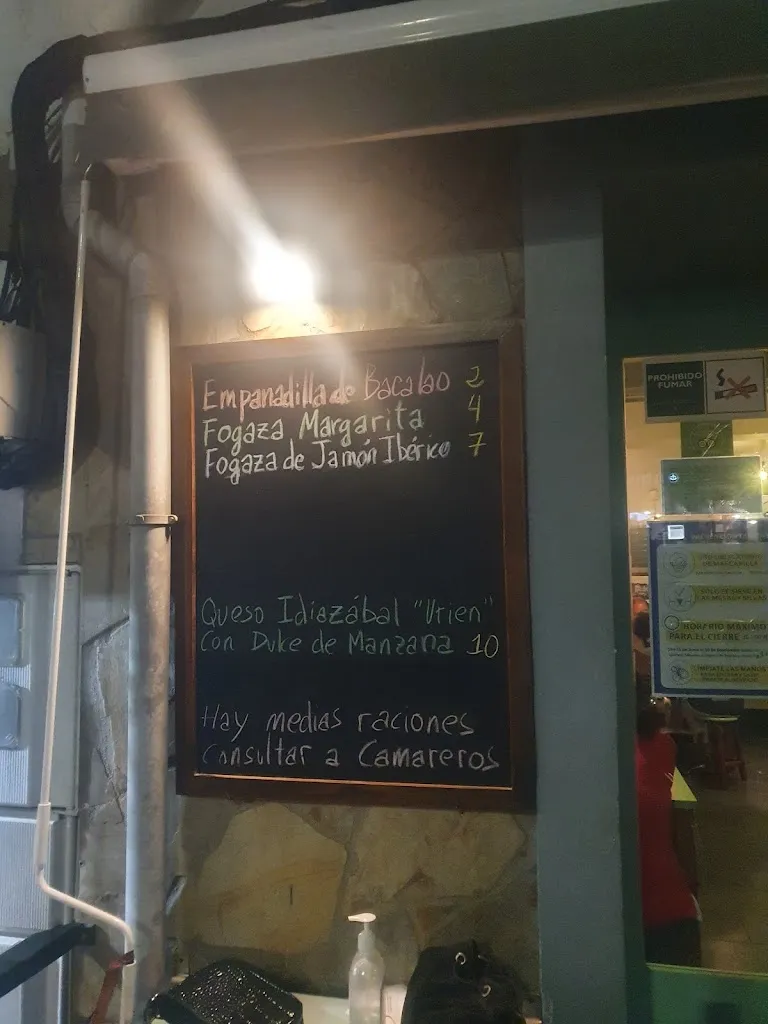 Empanadilla de Bacalao 2
Fogaza Margarita 4
Fogaza de Jamón Ibérico 7
Queso Idiazábal "Urien"
Con Dulke de Manzana 10
Hay medias raciones
Consultar a Camareros
PROHIBIDO
FUMAR
HORARIO MÁXIMO
PARA EL CIERRE